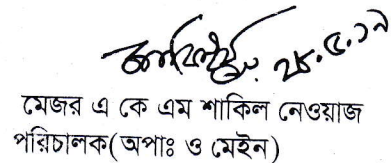 ২৮.৫.১৭
মেজর এ কে এম শাকিল নেওয়াজ
পরিচালক(অপাঃ ও মেইন)